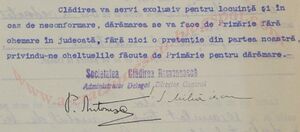 Clădirea va servi exclusiv pentru locuință și în
caz de neconformare, dărâmarea se va face de Primărie fără
chemare în judecată, fără nici o pretenție din partea noastră,
privindu-ne cheltuelile făcute de Primărie pentru dărâmare.
Societatea Clădirea Românească
Administrator Delegat, Director General